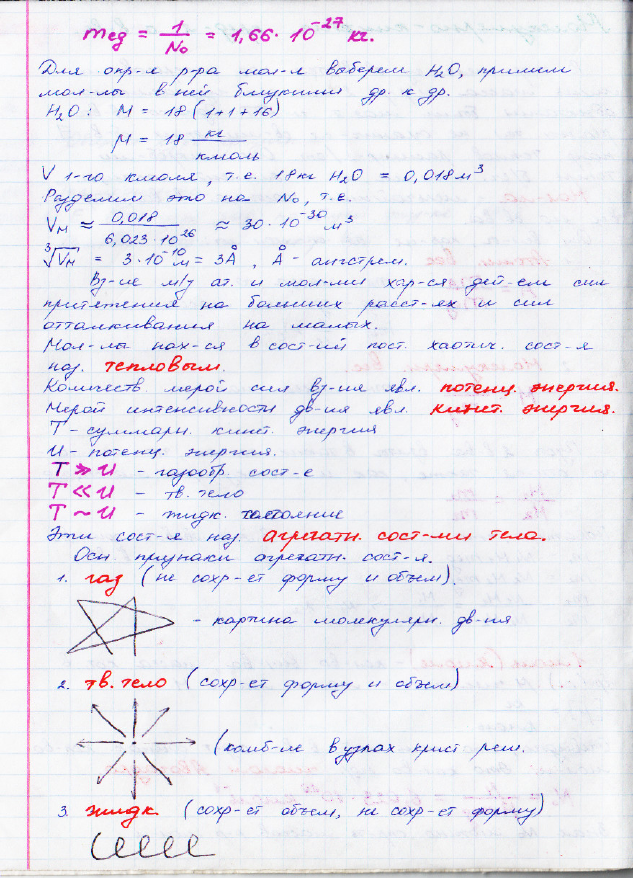 mед = 1/N₀ = 1,66·10⁻²⁷ кг.
Для опр-я р-ра мол-л выберем H₂O, примем
мол-лы в ней близкими др. к др.
H₂O: M = 18 (1+1+16)
M = 18 кг/кмоль
V 1-го кмоля, т.е. 18кг H₂O = 0,018м³
Разделим это на N₀, т.е.
Vм ≈ 0,018/6,023·10²⁶ ≈ 30·10⁻³⁰ м³
³√Vм = 3·10⁻¹⁰м = 3Å, Å - ангстрем.
Вз-ие м/у ат. и мол-ми хар-ся дей-ем сил
притяжения на больших расст-ях и сил
отталкивания на малых.
Мол-лы нах-ся в сост-ии пост. хаотич. сост-я
наз. тепловым.
Количеств. мерой сил вз-ия явл. потенц. энергия.
Мерой интенсивности дв-ия явл. кинет. энергия.
T - суммарн. кинет. энергия
U - потенц. энергия.
T ≫ U - газообр. сост-е
T ≪ U - тв. тело
T ~ U - жидк. состояние
Эти сост-я наз. агрегатн. сост-ми тела.
Осн. признаки агрегатн. сост-я.
1. газ (не сохр-ет форму и объем).
- картина молекулярн. дв-ия
2. тв. тело (сохр-ет форму и объем)
(колеб-ие в узлах крист. реш.
3. жидк. (сохр-ет объем, не сохр-ет форму)